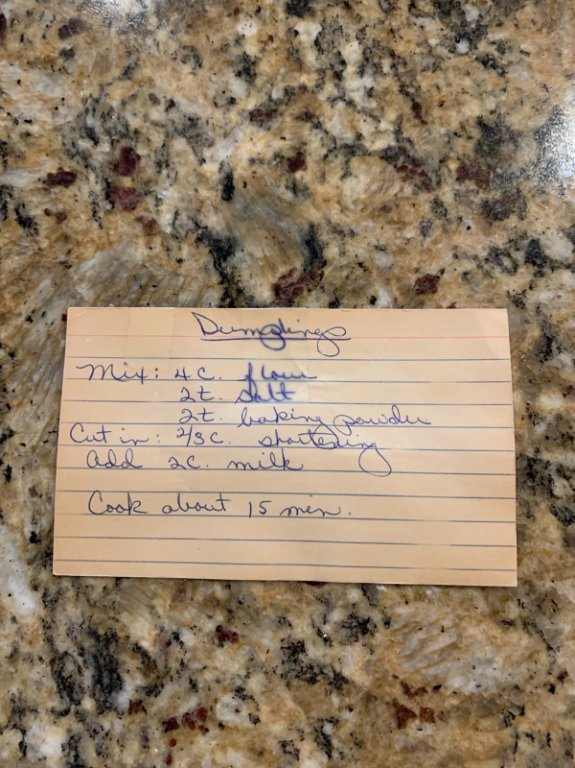 Dumplings
Mix: 4 c. flour
2 t. salt
2 t. baking powder
Cut in: 2/3 c. shortening
add 2 c. milk
Cook about 15 min.